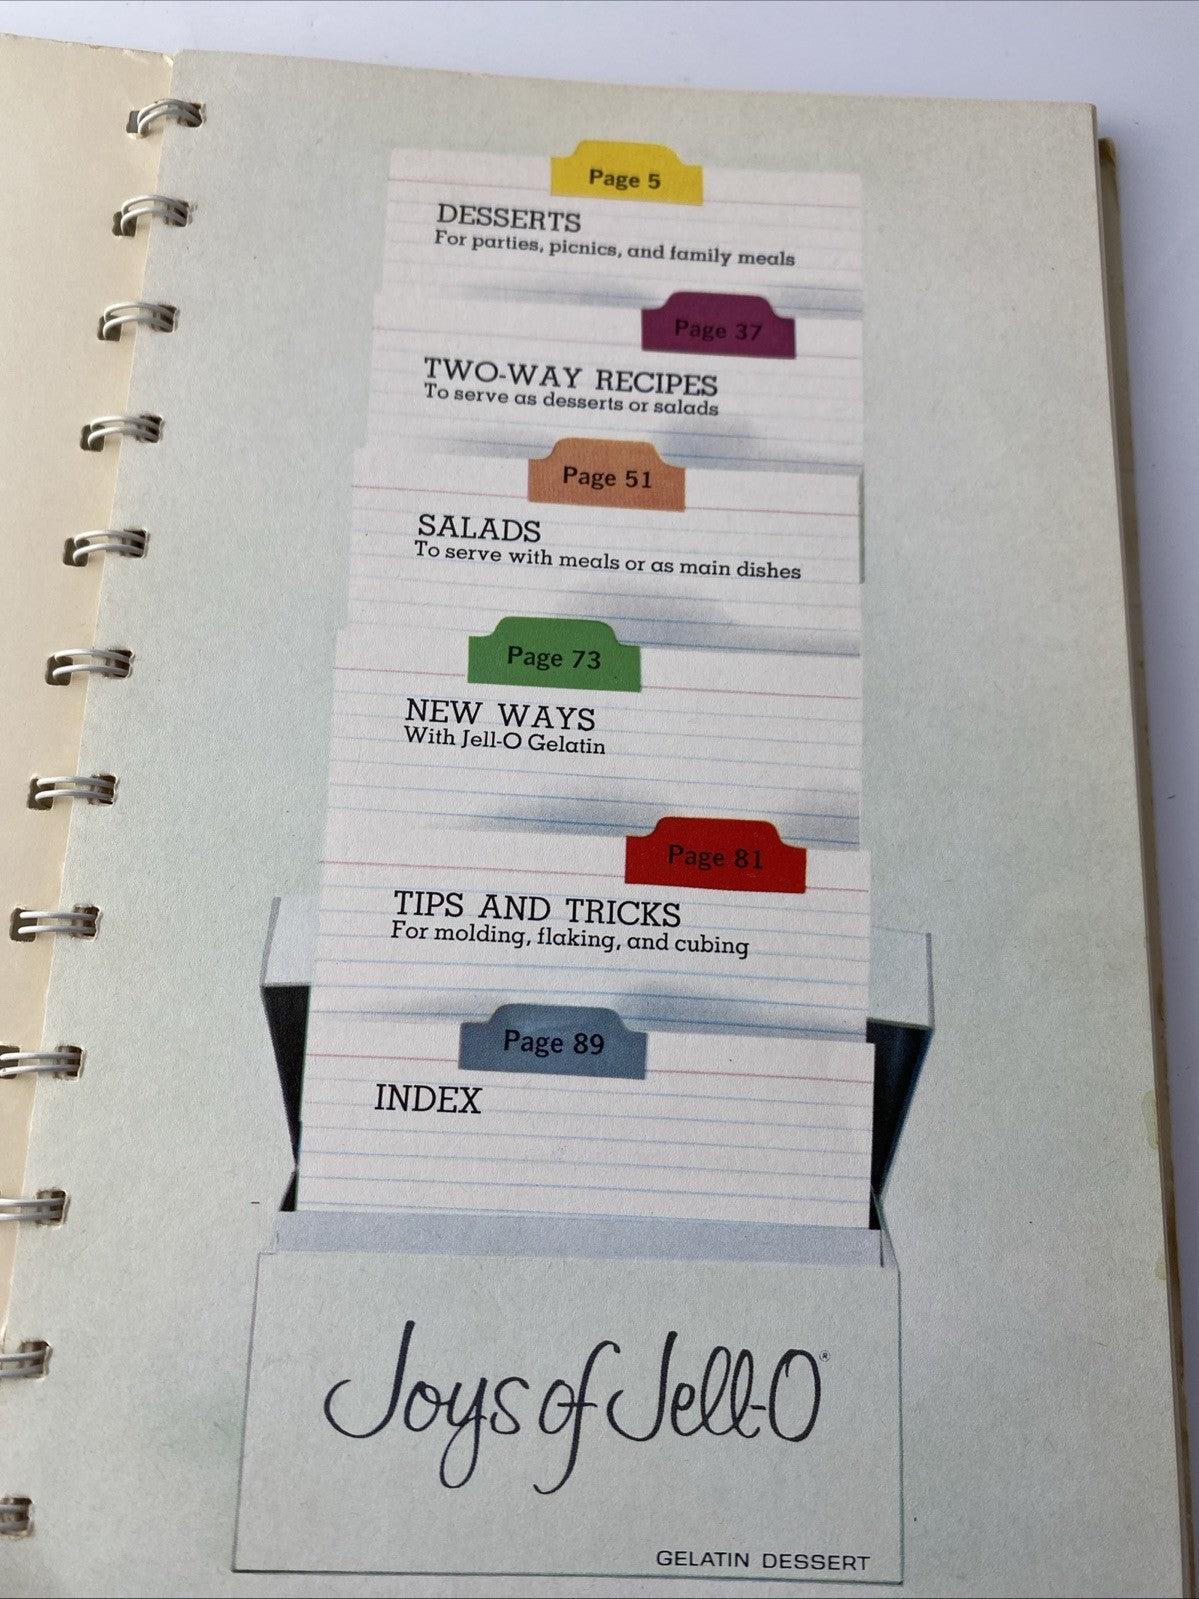 Page 5
DESSERTS
For parties, picnics, and family meals
Page 37
TWO-WAY RECIPES
To serve as desserts or salads
Page 51
SALADS
To serve with meals or as main dishes
Page 73
NEW WAYS
With Jell-O Gelatin
Page 81
TIPS AND TRICKS
For molding, flaking, and cubing
Page 89
INDEX
Joys of Jell-O®
GELATIN DESSERT